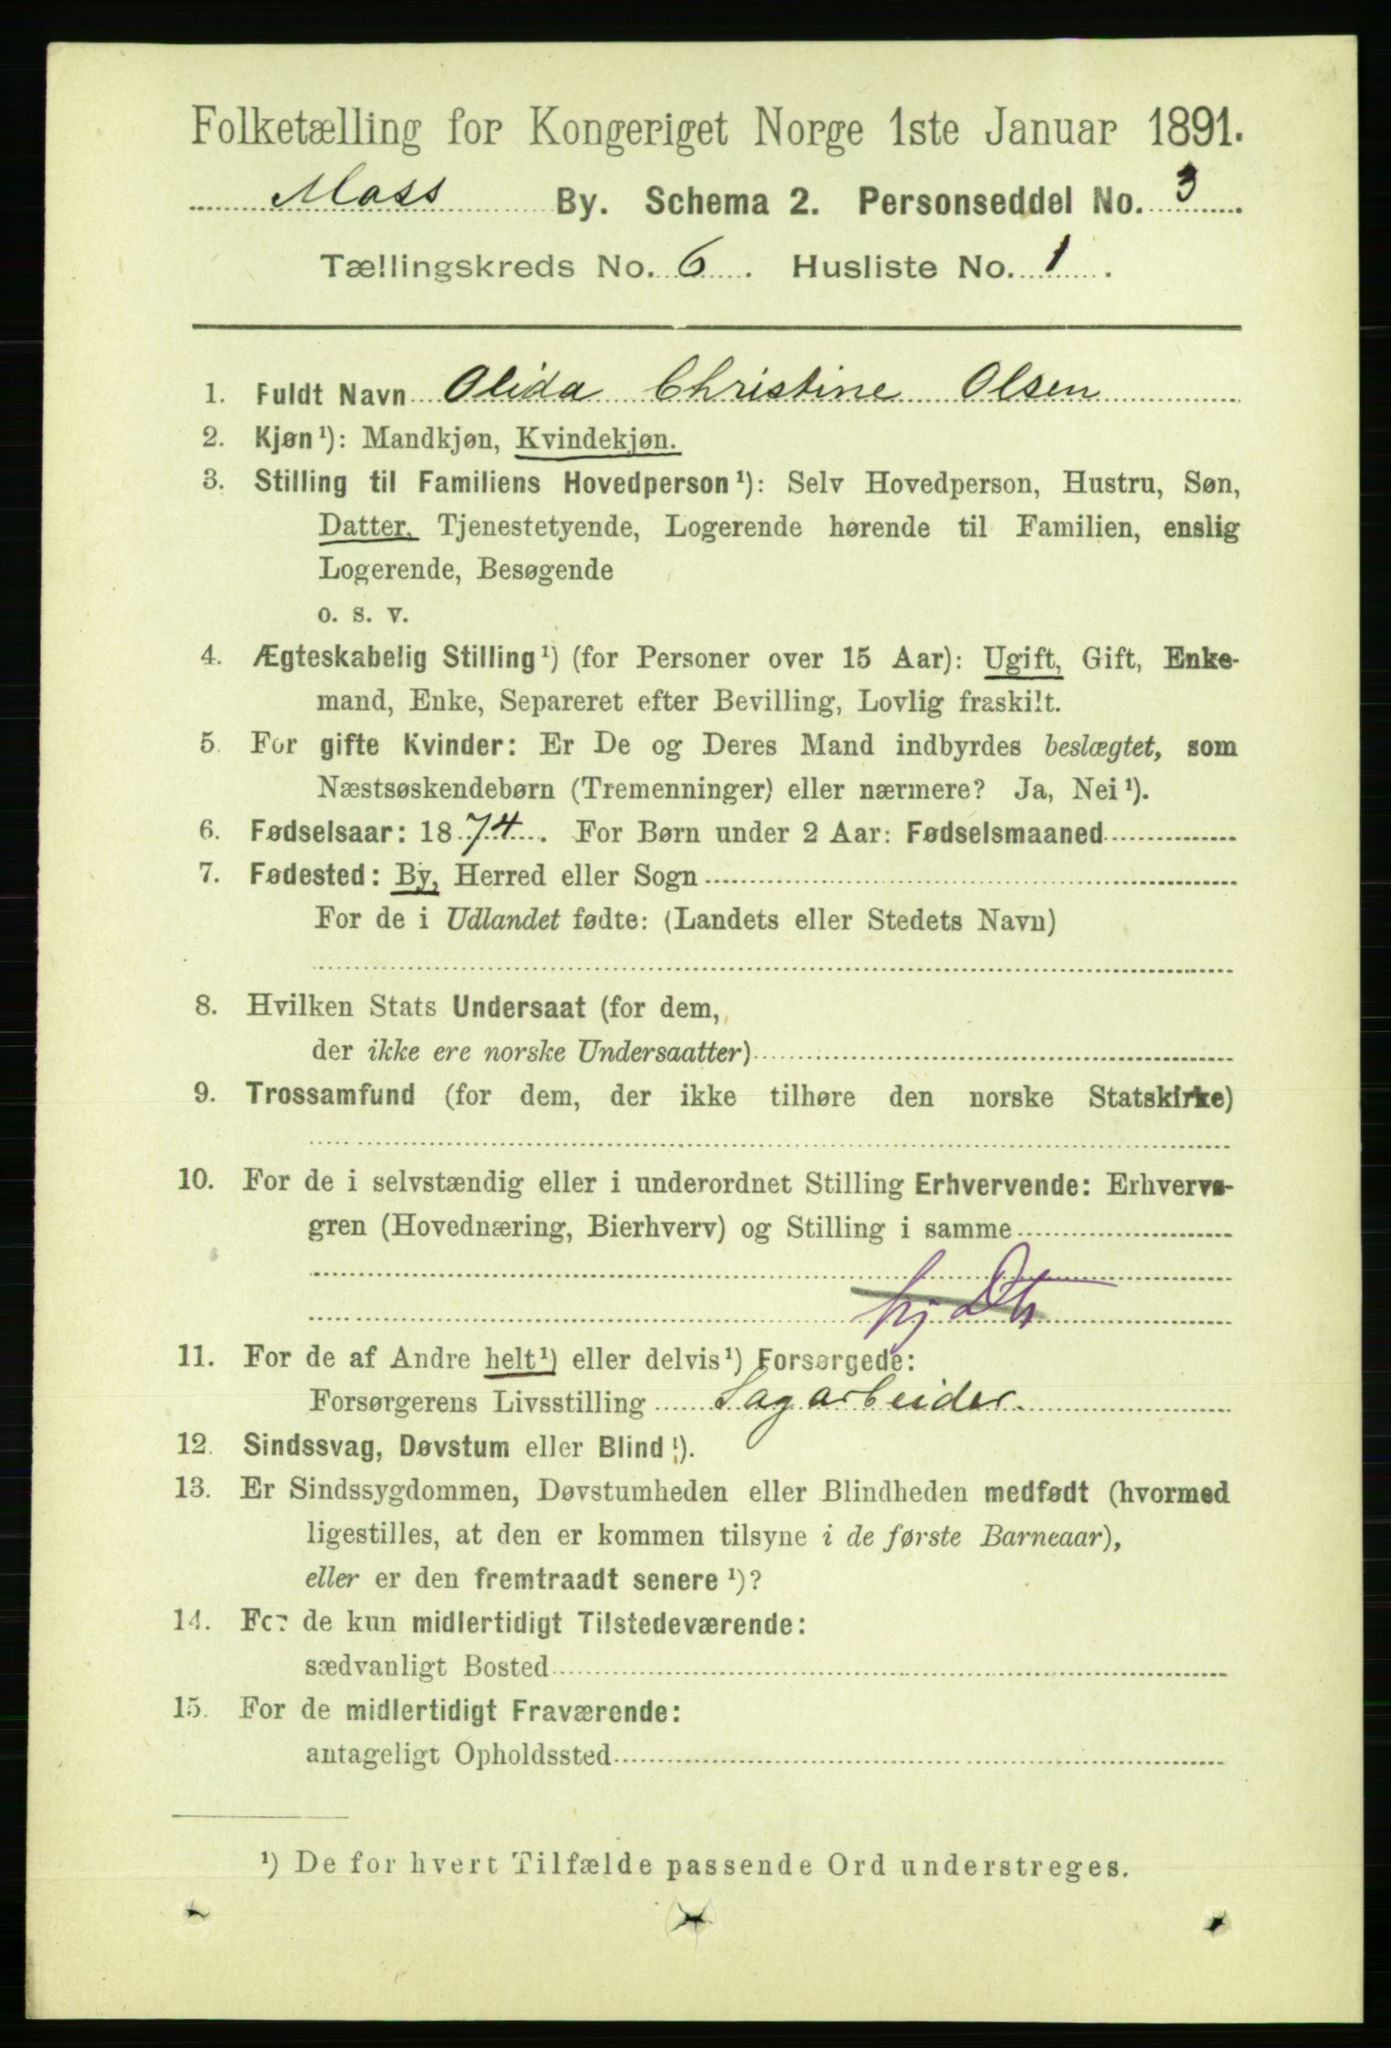 Folketælling for Kongeriget Norge 1ste Januar 1891.
Moss By. Schema 2. Personseddel No. 3
Tællingskreds No. 6. Husliste No. 1.
1. Fuldt Navn Olida Christine Olsen
2. Kjøn¹): Mandkjøn, Kvindekjøn.
3. Stilling til Familiens Hovedperson¹): Selv Hovedperson, Hustru, Søn,
Datter, Tjenestetyende, Logerende hørende til Familien, enslig
Logerende, Besøgende
o. s. v.
4. Ægteskabelig Stilling¹) (for Personer over 15 Aar): Ugift, Gift, Enke-
mand, Enke, Separeret efter Bevilling, Lovlig fraskilt.
5. For gifte Kvinder: Er De og Deres Mand indbyrdes beslægtet, som
Næstsøskendebørn (Tremenninger) eller nærmere? Ja, Nei¹).
6. Fødselsaar: 1874. For Børn under 2 Aar: Fødselsmaaned
7. Fødested: By, Herred eller Sogn
For de i Udlandet fødte: (Landets eller Stedets Navn)
8. Hvilken Stats Undersaat (for dem,
der ikke ere norske Undersaatter)
9. Trossamfund (for dem, der ikke tilhøre den norske Statskirke)
10. For de i selvstændig eller i underordnet Stilling Erhvervende: Erhvervs-
gren (Hovednæring, Bierhverv) og Stilling i samme
11. For de af Andre helt¹) eller delvis¹) Forsørgede:
Forsørgerens Livsstilling Sagarbeider.
12. Sindssvag, Døvstum eller Blind¹).
13. Er Sindssygdommen, Døvstumheden eller Blindheden medfødt (hvormed
ligestilles, at den er kommen tilsyne i de første Barneaar),
eller er den fremtraadt senere¹)?
14. For de kun midlertidigt Tilstedeværende:
sædvanligt Bosted
15. For de midlertidigt Fraværende:
antageligt Opholdssted
¹) De for hvert Tilfælde passende Ord understreges.